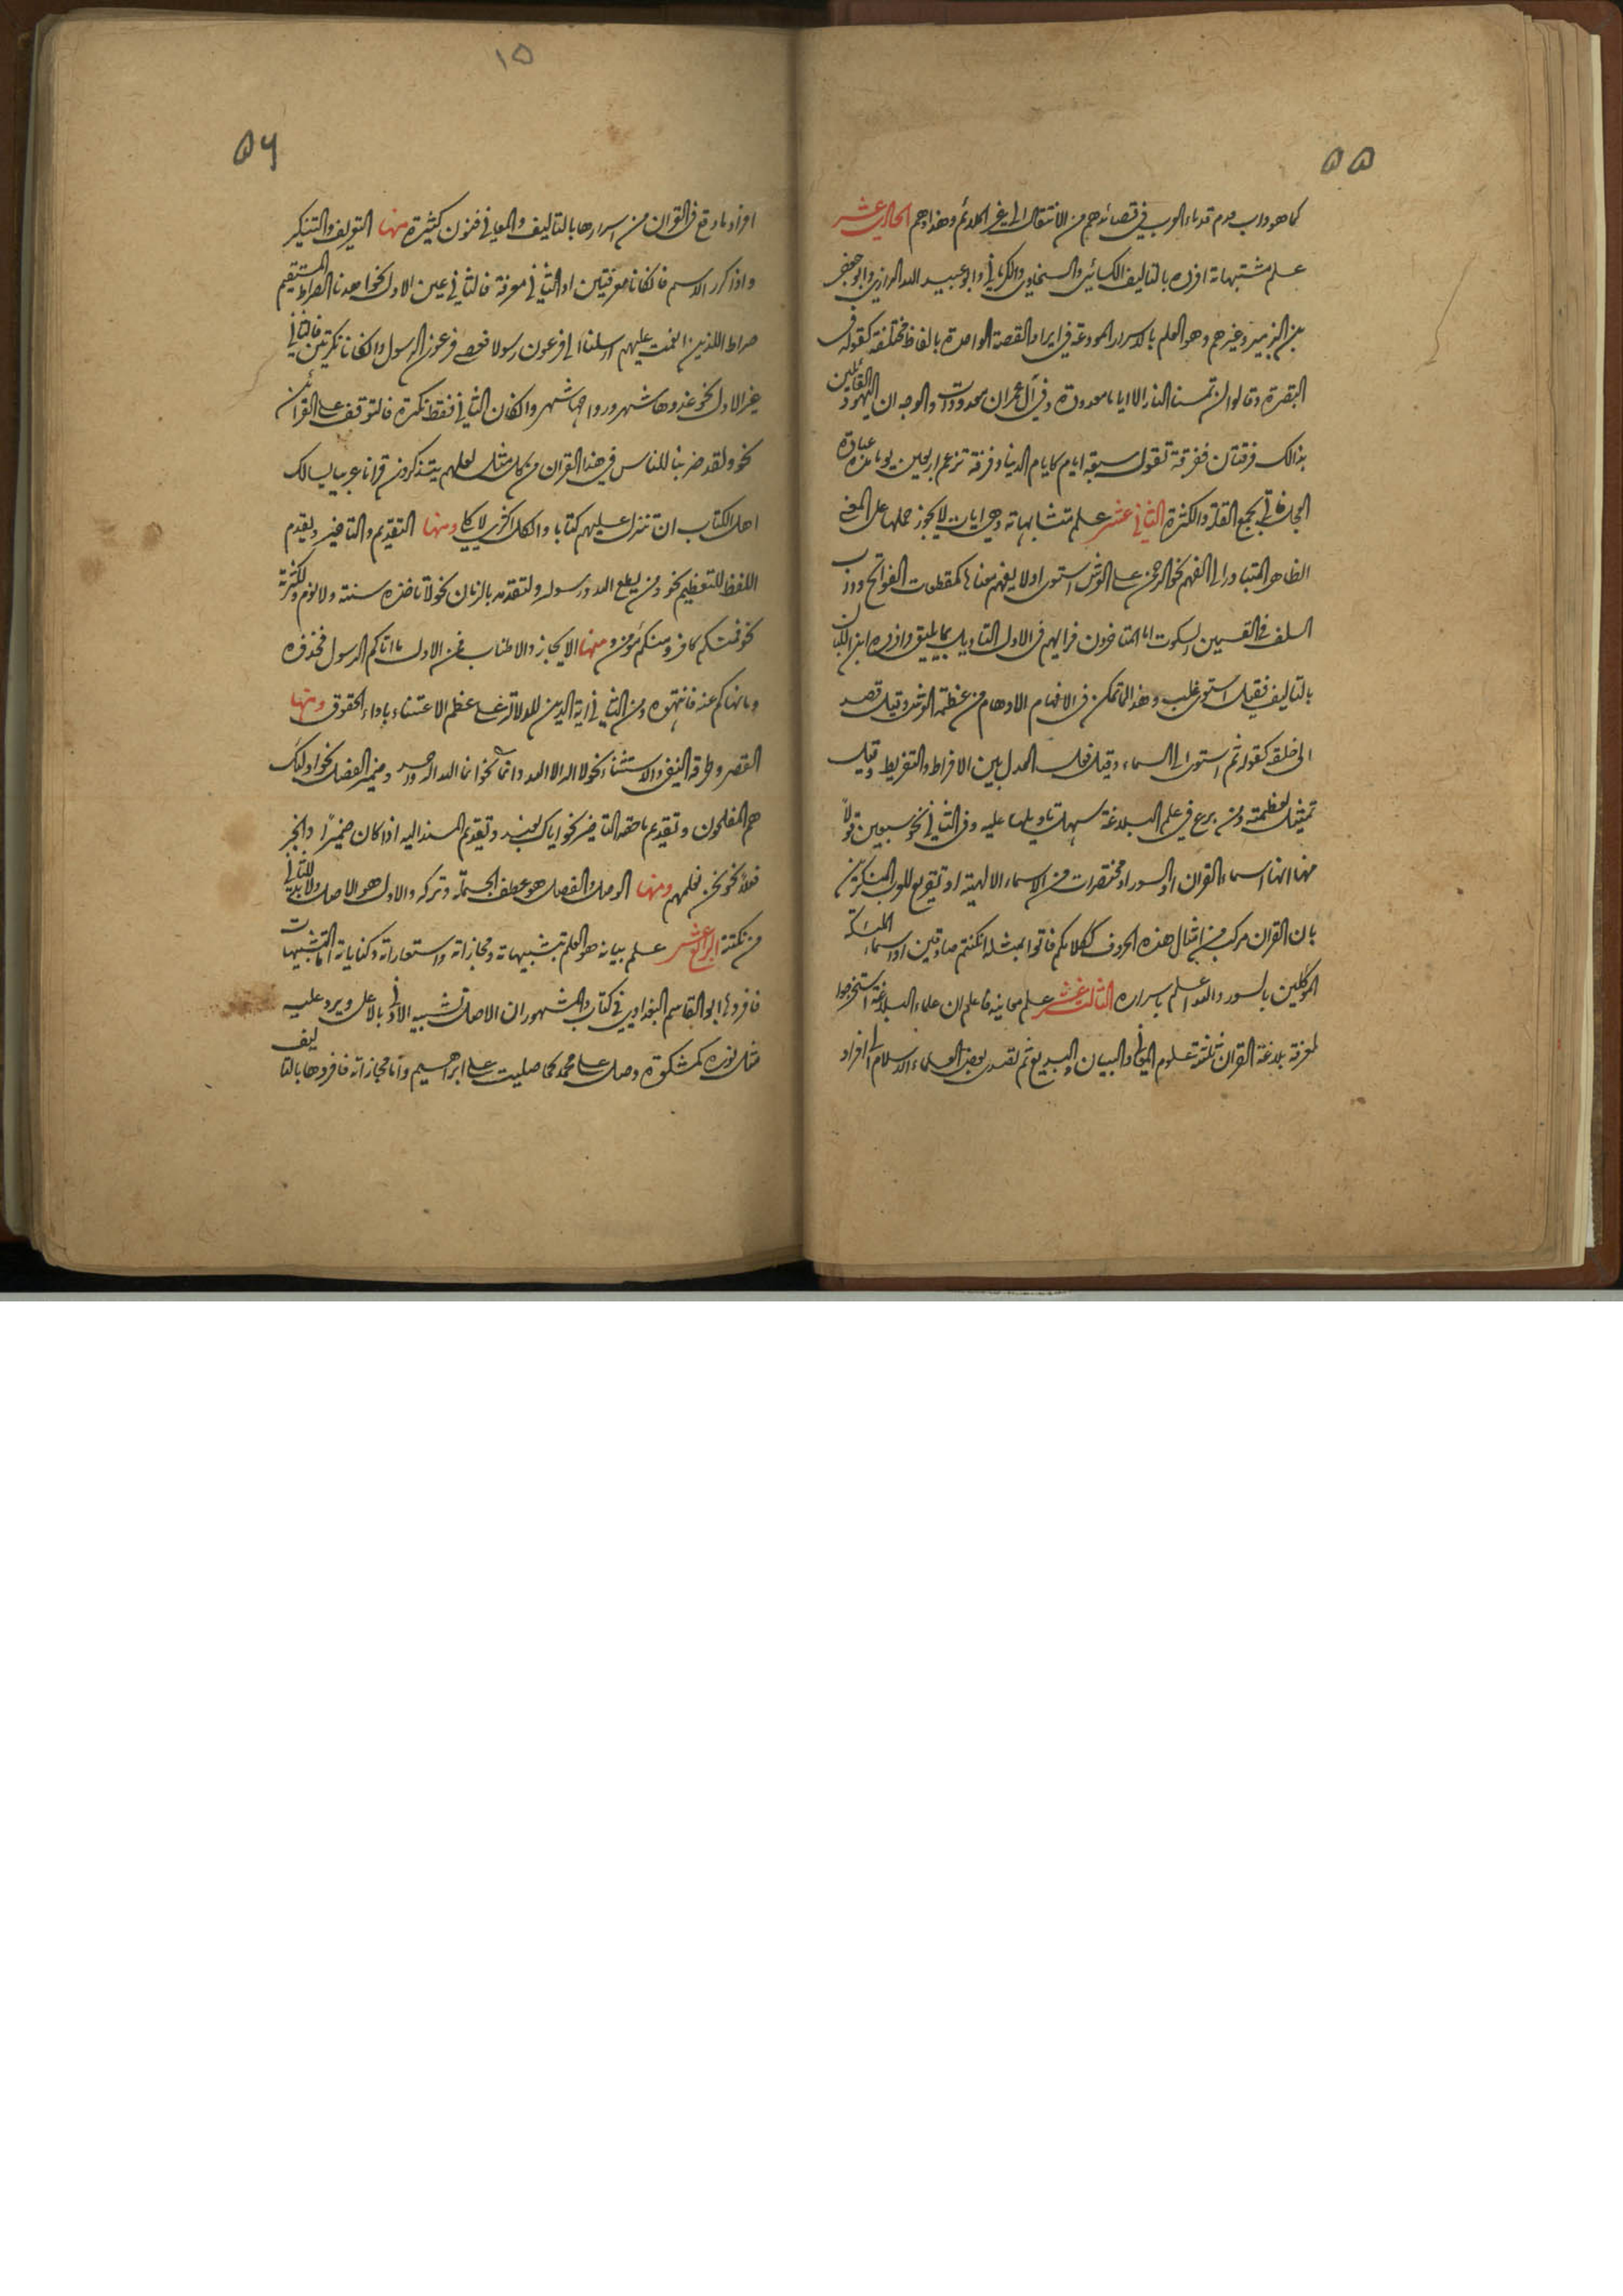 ۵۵
كما هو داب قدماء العرب في قصائدهم من الانتقال الى غير الملائم وهذا وهم الحادي عشر
علم مشتبهاته افرده بالتاليف الكسائي والسخاوي والكرماني وابو عبيد الله الرازي وابو جعفر
بن الزبير وغيرهم وهو العلم بالاسرار المودعة في ايراد القصة الواحدة بالفاظ مختلفة كقوله في
البقرة وقالوا لن تمسنا النار الا اياما معدودة وفي آل عمران معدودات والوجه ان اليهود القائلين
بذالك فرقتان ففرقة تقول سبعة ايام كايام الدنيا وفرقة تزعم اربعين يوما مدة عبادة
العجل فاتي بجمع القلة والكثرة الثاني عشر علم متشابهاته وهي ايات لا يجوز حملها على المعنى
الظاهر المتبادر الى الفهم نحو الرحمن على العرش استوى او لا يفهم معناها كمقطعات الفواتح وداب
السلف في القسمين السكوت اما المتاخرون فرايهم في الاول التاويل بما يليق وافرده ابن اللبان
بالتاليف فقيل استوى غلب وهذا لما تمكن في الافهام الاوهام من عظمة العرش وقيل قصد
الى خلقه كقوله ثم استوى الى السماء وقيل فعل العدل بين الافراط والتفريط وقيل
تمثيل لعظمته ومن برع في علم البلاغة سهلت تاويلها عليه وفي الثاني نحو سبعين قولا
منها انها اسماء القران او السور او مختصرات من الاسماء الالهية او تقريع للعرب المنكرين
بان القران مركب من امثال هذه الحروف ككلامكم فاتوا بمثله ان كنتم صادقين او اسماء الملئكة
الموكلين بالسور والله اعلم باسراره الثالث عشر علم معانيه فاعلم ان علماء البلاغة استخرجوا
لمعرفة بلاغة القران ثلثة علوم المعاني والبيان والبديع ثم تصدى بعض العلماء الاسلام الى افراد
۱۵
۵۶
افراد ما وقع في القران من اسرارها بالتاليف والمعاني فنون كثيرة منها التعريف والتنكير
واذا كرر الاسم فان كانا معرفتين او الثاني معرفة فالثاني عين الاول نحو اهدنا الصراط المستقيم
صراط الذين انعمت عليهم ارسلنا الى فرعون رسولا فعصى فرعون الرسول وان كانا نكرتين فالثاني
غير الاول نحو غدوها شهر ورواحها شهر وان كان الثاني فقط نكرة فالتوقف على القرائن
نحو ولقد ضربنا للناس في هذا القران من كل مثل لعلهم يتذكرون قرانا عربيا يسالك
اهل الكتاب ان تنزل عليهم كتابا والكل اكثري لا كلي ومنها التقديم والتاخير ويقدم
اللفظ للتعظيم نحو ومن يطع الله ورسوله ولتقدمه بالزمان نحو لا تاخذه سنة ولا نوم ولكثرته
نحو فمنكم كافر ومنكم مؤمن ومنها الايجاز والاطناب فمن الاول ما اتاكم الرسول فخذوه
وما نهاكم عنه فانتهوه ومن الثاني في اية الدين للدلالة على عظم الاعتناء باداء الحقوق ومنها
القصر وطرقه النفي والاستثناء نحو لا اله الا الله وانما نحو انما الله اله واحد وضمير الفصل نحو اولئك
هم المفلحون وتقديم ما حقه التاخير نحو اياك نعبد وتقديم المسند اليه اذا كان ضميرا والخبر
فعلا نحو نحن نعلمهم ومنها الوصل والفصل هو عطف الجملة وتركه والاول هو الاصل ولا بد للثاني
من نكتة الرابع عشر علم بيانه هو العلم بتشبيهاته ومجازاته واستعاراته وكناياته اما التشبيهات
فافردها ابو القاسم البغدادي في كتاب والمشهور ان الاصل تشبيه الادنى بالاعلى ويرد عليه
مثل نوره كمشكوة وصل على محمد كما صليت على ابراهيم واما مجازاته فافردها بالتاليف